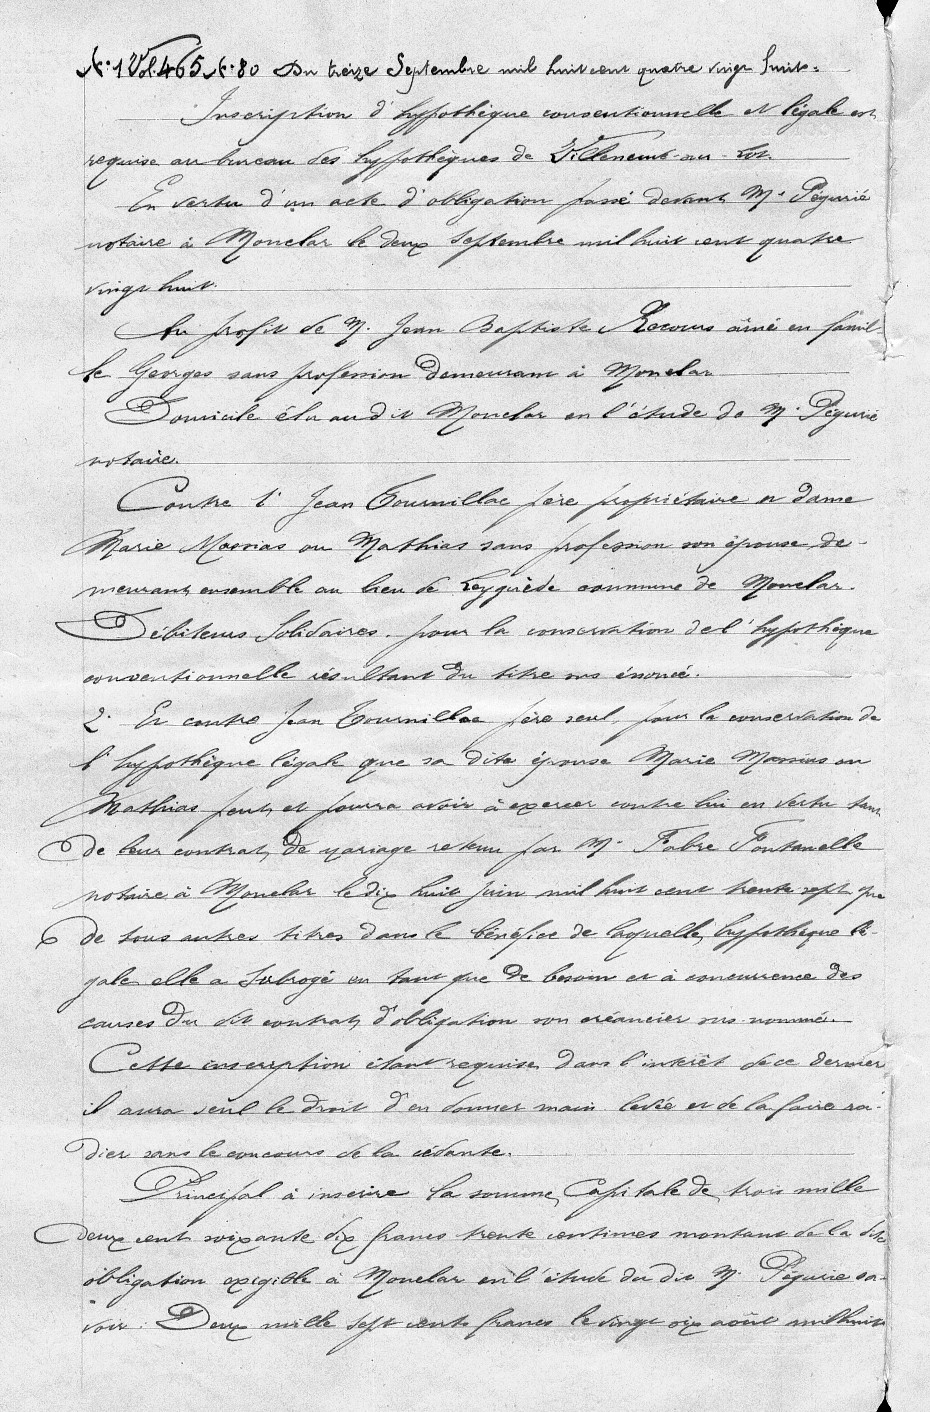 N° 1 Vol. 465 N° 80 Du treize Septembre mil huit cent quatre vingt huit.
Inscription d'hypothèque conventionnelle et légale est
requise au bureau des hypothèques de Villeneuve-sur-Lot.
En vertu d'un acte d'obligation passé devant Me Pégurié
notaire à Monclar le deux Septembre mil huit cent quatre
vingt huit.
Au profit de M. Jean Baptiste Recours aîné en famil-
le Georges sans profession demeurant à Monclar
Domicile élu au dit Monclar en l'étude de Me Pégurié
notaire.
Contre 1° Jean Tournillac père propriétaire et dame
Marie Massias ou Mathias sans profession son épouse, de-
meurant ensemble au lieu de Leyguède commune de Monclar.
Débiteurs Solidaires. pour la conservation de l'hypothèque
conventionnelle résultant du titre sus énoncé.
2° Et contre Jean Tournillac père seul, pour la conservation de
l'hypothèque légale que sa dite épouse Marie Massias ou
Mathias peut et pourra avoir à exercer contre lui en vertu tant
de leur contrat de mariage retenu par Me Fabre Fontanelle
notaire à Monclar le dix huit juin mil huit cent trente sept que
de tous autres titres dans le bénéfice de laquelle hypothèque lé-
gale elle a Subrogé en tant que de besoin et à concurrence des
causes du dit contrat d'obligation son créancier sus-nommé.
Cette inscription étant requise dans l'intérêt de ce dernier
il aura seul le droit d'en donner main levée et de la faire ra-
dier sans le concours de la cédante.
Principal à inscrire la somme Capitale de trois mille
deux cent soixante dix francs trente centimes montant de la dite
obligation exigible à Monclar en l'étude du dit Me Pégurié sa-
voir: Deux mille sept cents francs le vingt six août mil huit